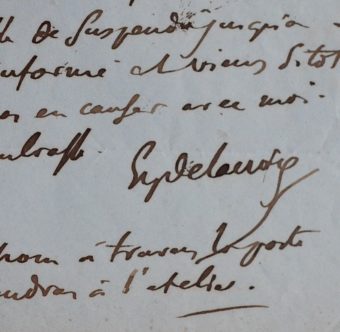 de Suspendre jusqu'à
informé et viens sitot
en causer avec moi.
EugDelacroix
à travers la porte
à l'atelier.